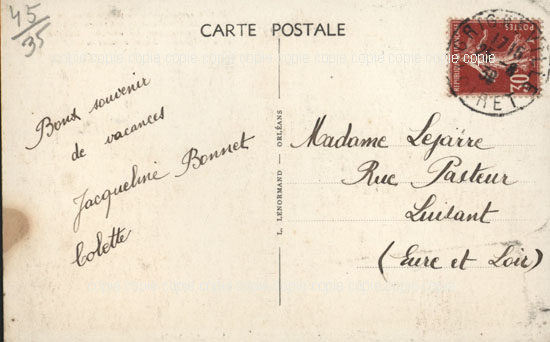 45
35
CARTE POSTALE
Bons souvenir
de vacances
Jacqueline Bonnet
Colette
L. LENORMAND — ORLÉANS
Madame Lejarre
Rue Pasteur
Luisant
(Eure et Loir)
POSTES
30
copie copie copie copie copie copie copie
copie copie copie copie copie copie copie
copie copie copie copie copie copie copie